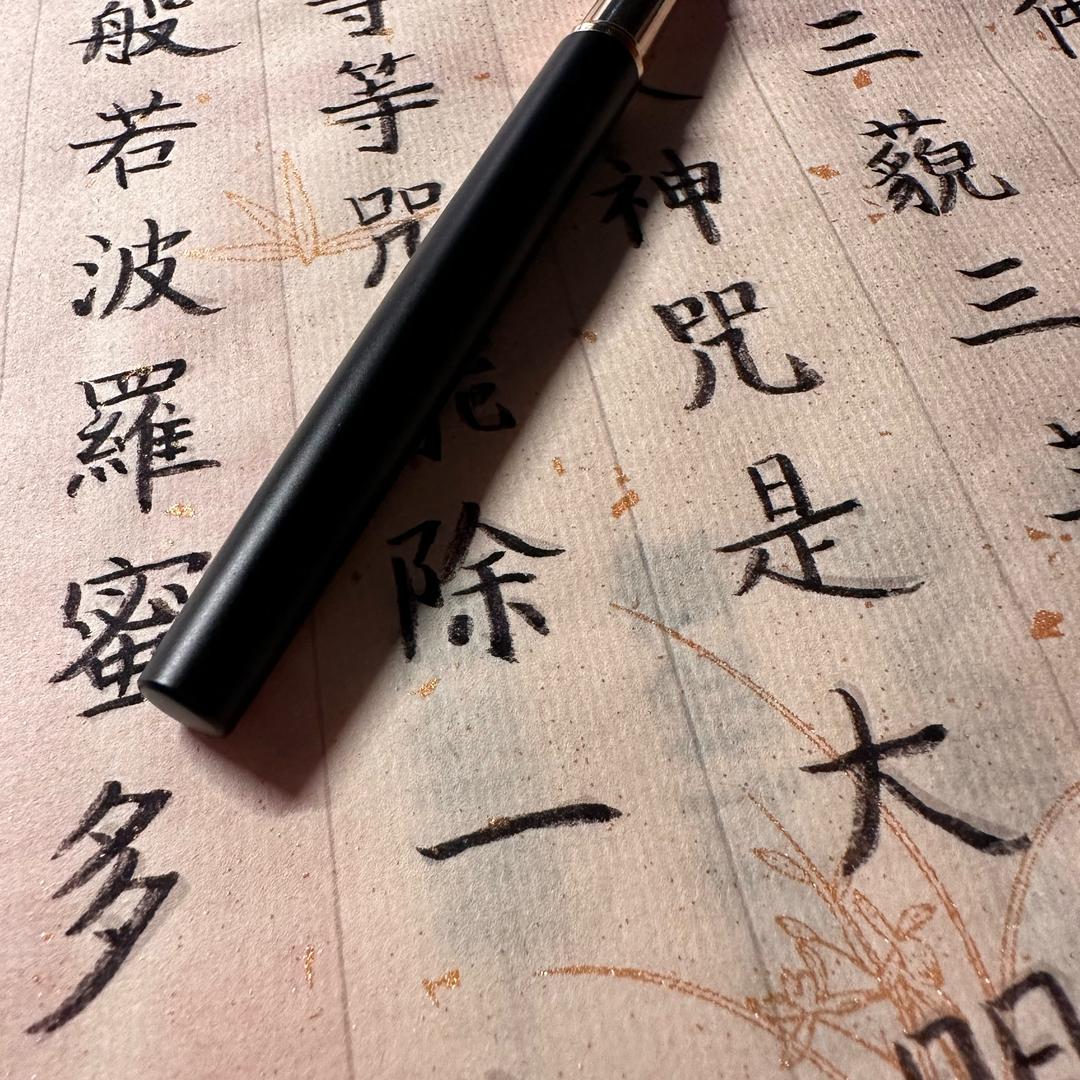 三藐三
神咒是大明
等等咒能除一
般若波羅蜜多